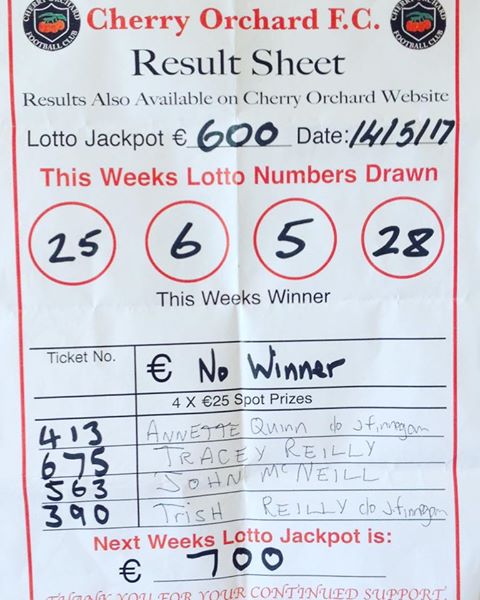 CHERRY ORCHARD FOOTBALL CLUB
Cherry Orchard F.C.
CHERRY ORCHARD FOOTBALL CLUB
Result Sheet
Results Also Available on Cherry Orchard Website
Lotto Jackpot € 600 Date: 14/5/17
This Weeks Lotto Numbers Drawn
25 6 5 28
This Weeks Winner
Ticket No. € No Winner
4 X €25 Spot Prizes
413 ANNETTE Quinn c/o J Finnegan
675 TRACEY REILLY
563 JOHN McNEILL
390 TRISH REILLY c/o J. Finnegan
Next Weeks Lotto Jackpot is:
€ 700
THANK YOU FOR YOUR CONTINUED SUPPORT.